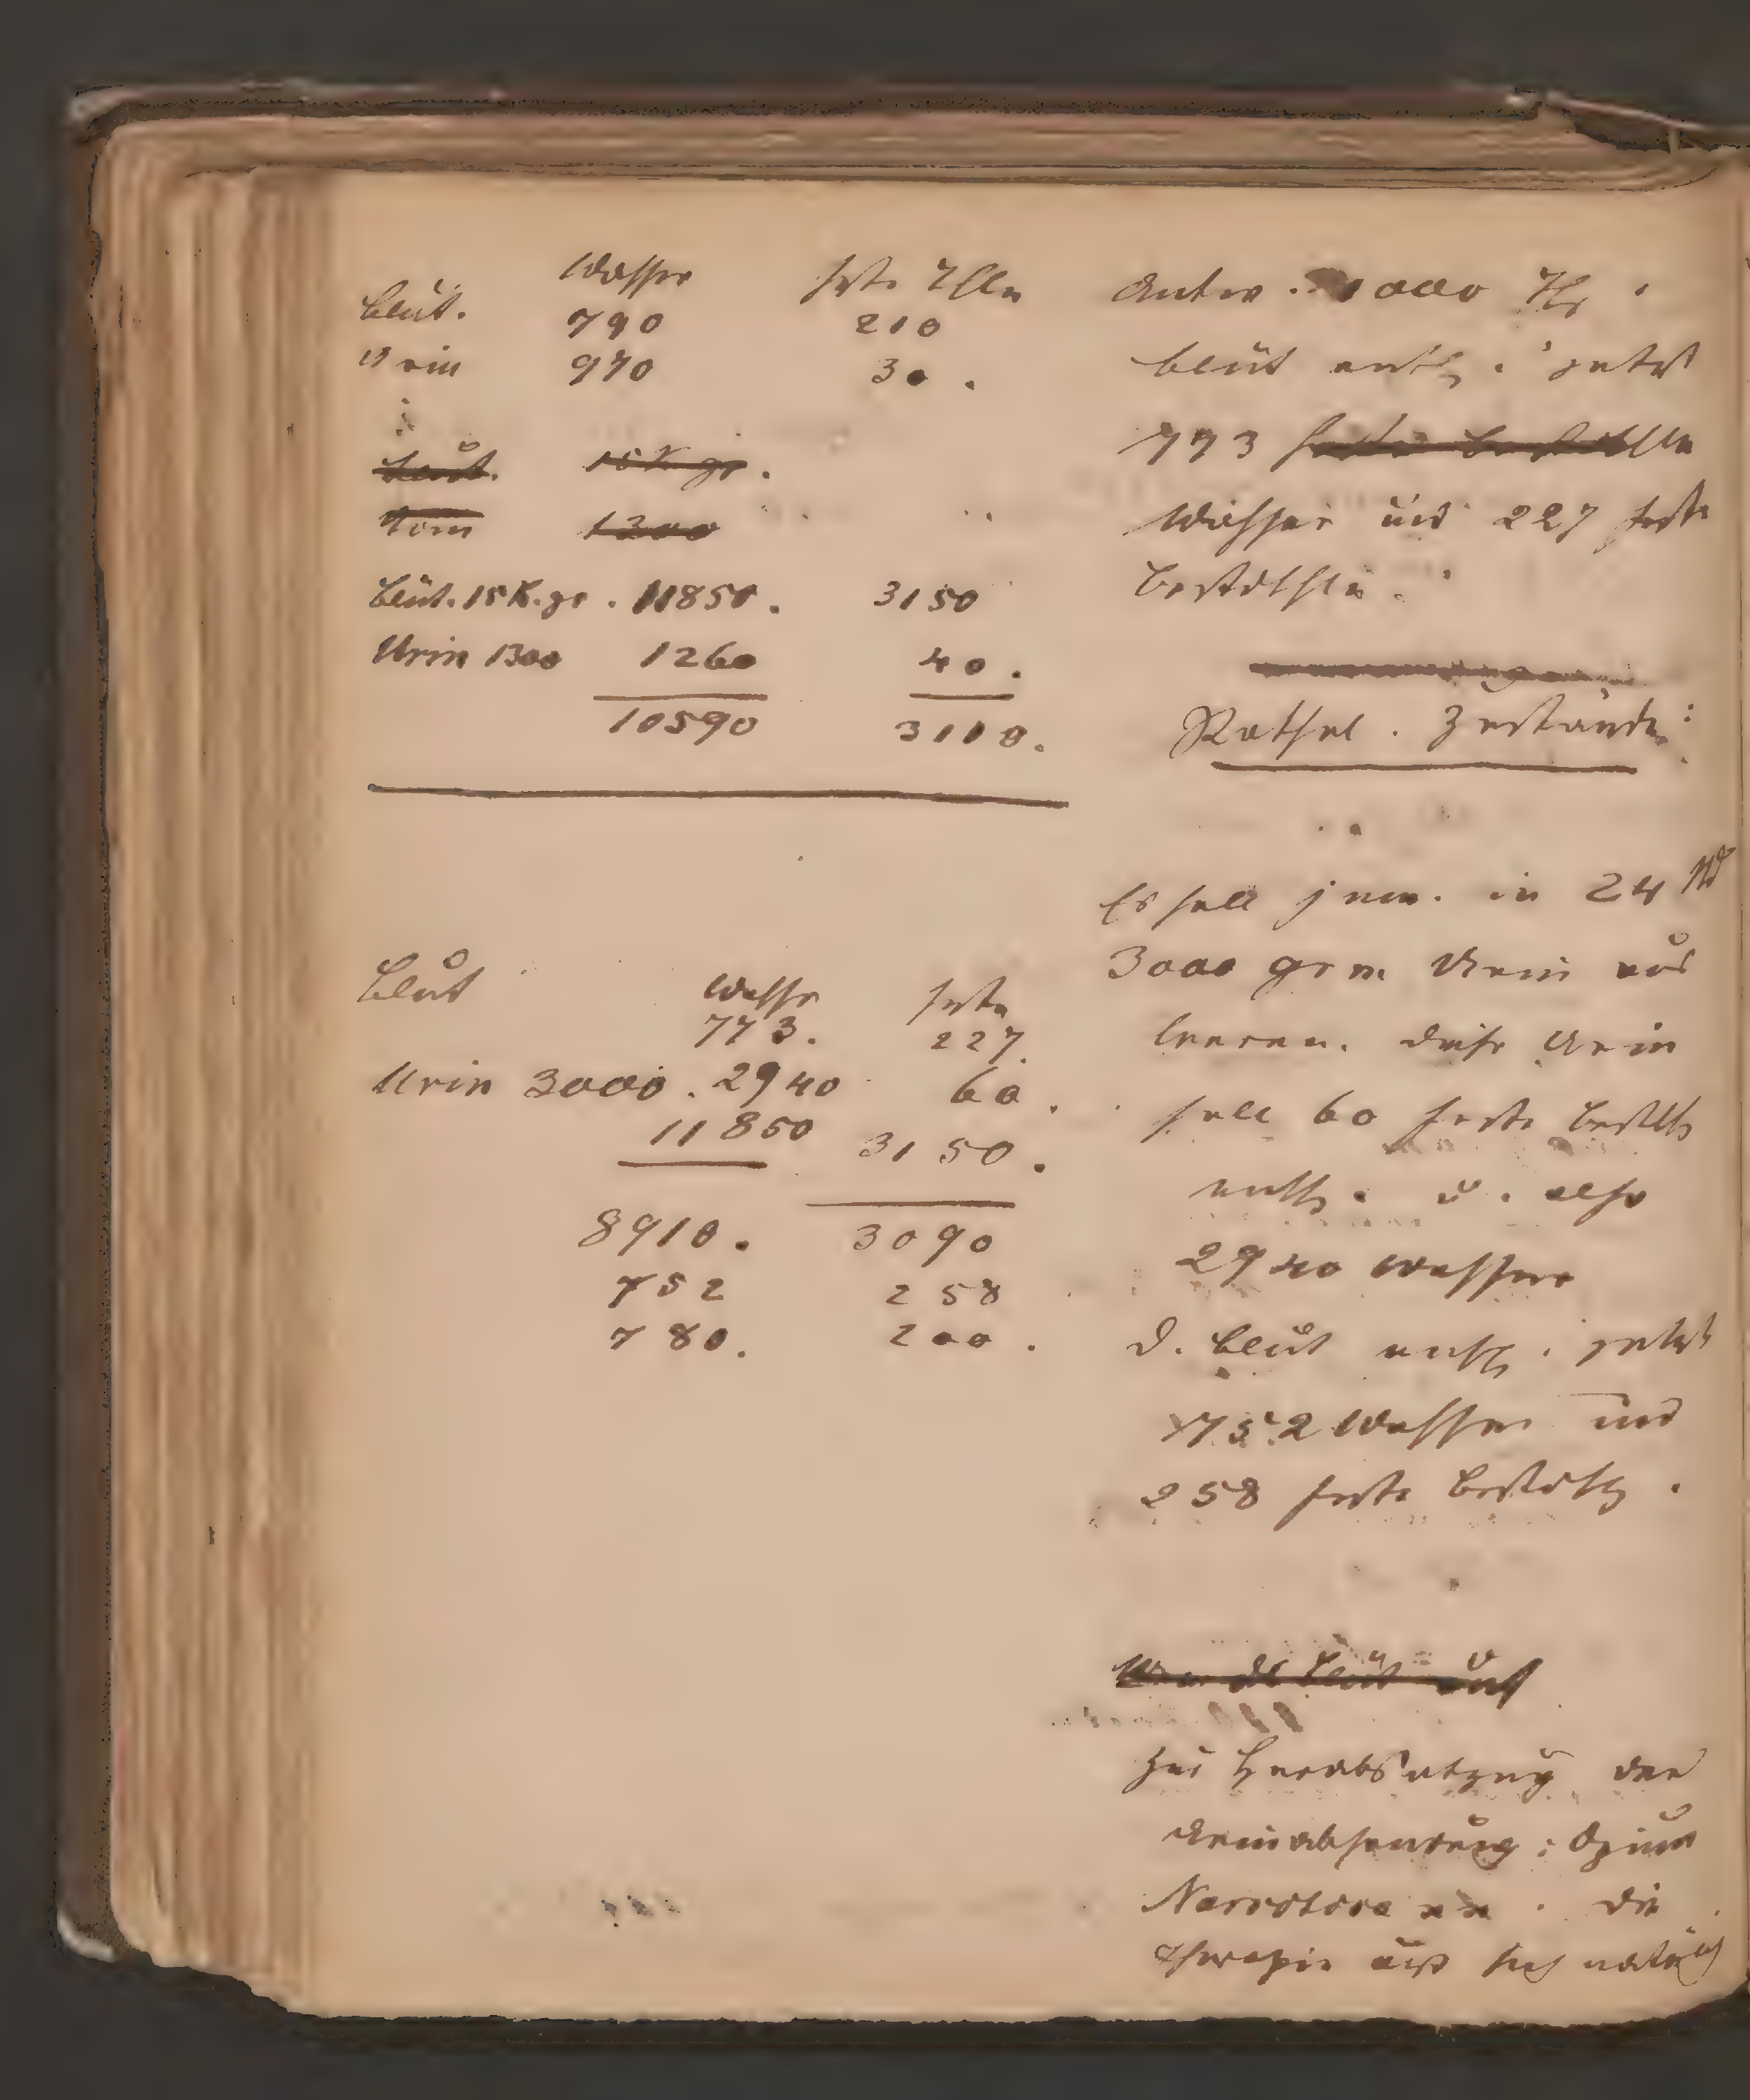 Wasser feste Thle
Blut. 790 210
Urin 970 30.
Blut. 15 K gr.
Urin 1300
Blut. 15 K. gr. 11850. 3150
Urin 1300 1260 40.
10590 3110.
Blut Wasser feste
773. 227.
Urin 3000. 2940 60.
11850 3150.
8910. 3090
752 258
780. 200.
Antw. 1000 Thle
Blut enth. jetzt
773
Wasser und 227 feste
Bestdthle.
Pathol. Zustände:
Es soll jem. in 24 Std
3000 grm Urin aus
leeren. Dieser Urin
soll 60 feste Bestdth
enth. u. also
2940 Wasser
D. Blut enth. jetzt
752 Wasser und
258 feste Bestdth.
Zur Herabsetzung der
Urinabsendrung: Opium
Narcotica Die
Therapie muß sich natürlich